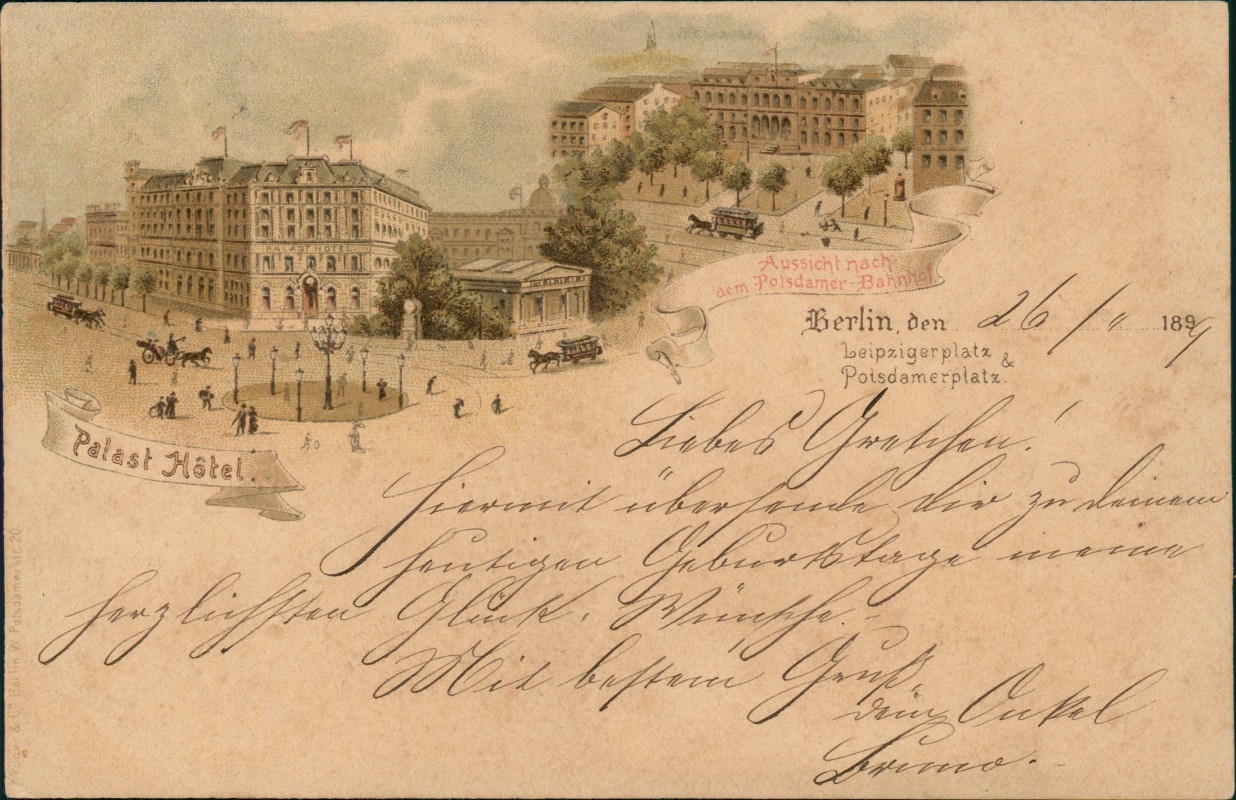 PALAST HÔTEL
Palast Hôtel.
Aussicht nach
dem Potsdamer-Bahnhof
Berlin, den 26/ 189
Leipzigerplatz
&
Potsdamerplatz.
Liebes Gretchen!
Hiermit übersende Dir zu deinem
heutigen Geburtstage meine
herzlichsten Glück-Wünsche.-
Mit bestem Gruß,
dein Onkel
Bruno.-
& Co Berlin W. Potsdamerstr. 20